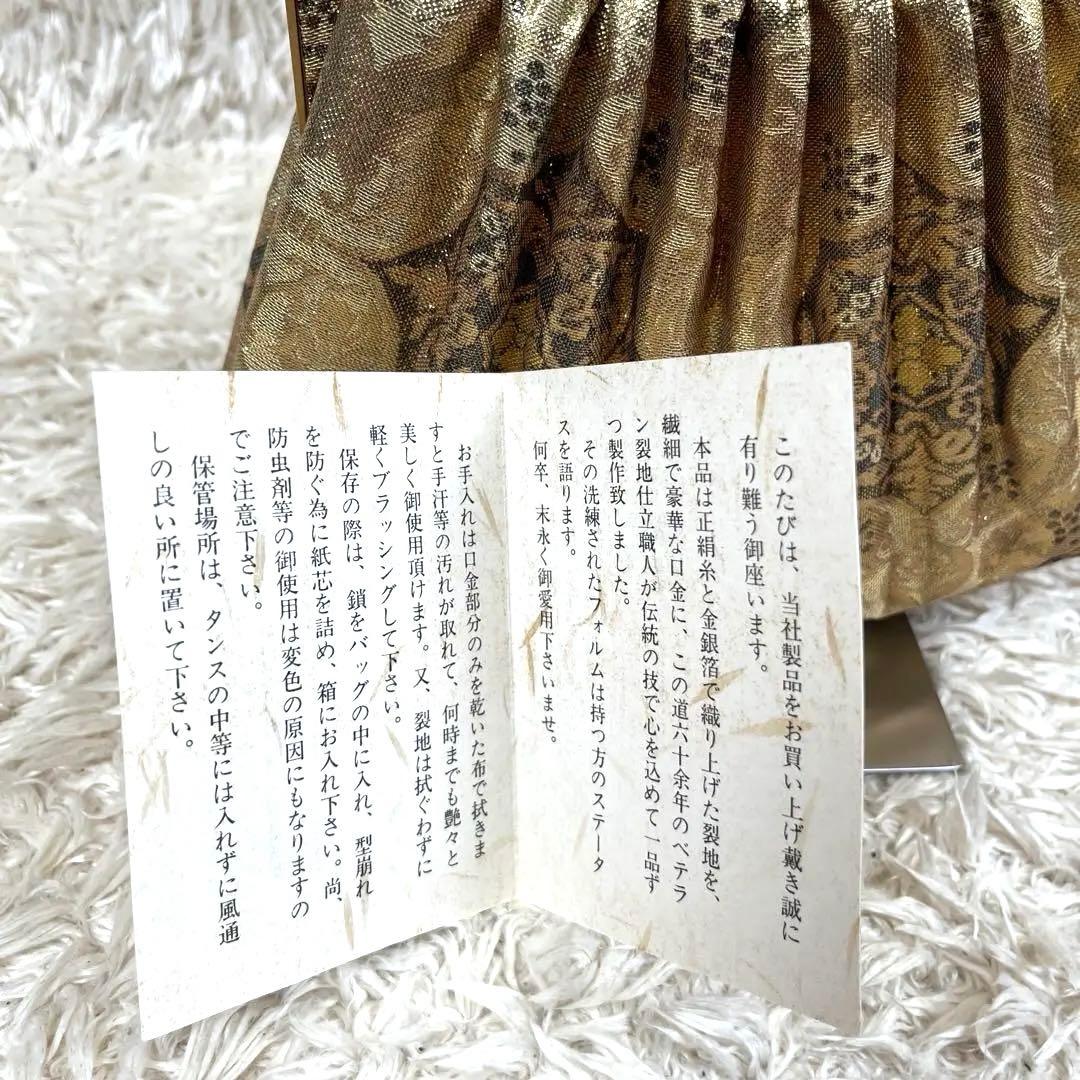 このたびは、当社製品をお買い上げ戴き誠に
有り難う御座います。
本品は正絹糸と金銀箔で織り上げた裂地を、
繊細で豪華な口金に、この道六十余年のベテラ
ン裂地仕立職人が伝統の技で心を込めて一品ず
つ製作致しました。
その洗練されたフォルムは持つ方のステータ
スを語ります。
何卒、末永く御愛用下さいませ。
お手入れは口金部分のみを乾いた布で拭きま
すと手汗等の汚れが取れて、何時までも艶々と
美しく御使用頂けます。又、裂地は拭ぐわずに
軽くブラッシングして下さい。
保存の際は、鎖をバッグの中に入れ、型崩れ
を防ぐ為に紙芯を詰め、箱にお入れ下さい。尚、
防虫剤等の御使用は変色の原因にもなりますの
でご注意下さい。
保管場所は、タンスの中等には入れずに風通
しの良い所に置いて下さい。